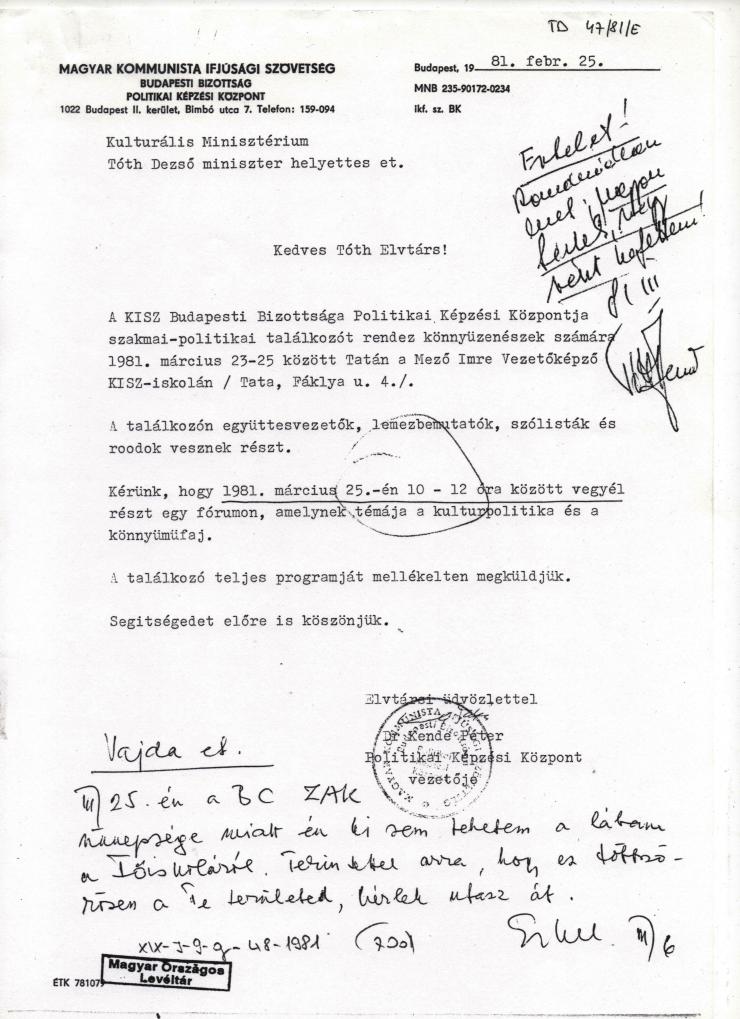 TD 47/81/E
MAGYAR KOMMUNISTA IFJÚSÁGI SZÖVETSÉG
BUDAPESTI BIZOTTSÁG
POLITIKAI KÉPZÉSI KÖZPONT
1022 Budapest II. kerület, Bimbó utca 7. Telefon: 159-094
Budapest, 19 81. febr. 25.
MNB 235-90172-0234
Ikf. sz. BK
Kulturális Minisztérium
Tóth Dezső miniszter helyettes et.
Kedves Tóth Elvtárs!
A KISZ Budapesti Bizottsága Politikai Képzési Központja
szakmai-politikai találkozót rendez könnyüzenészek számára
1981. március 23-25 között Tatán a Mező Imre Vezetőképző
KISZ-iskolán / Tata, Fáklya u. 4./.
A találkozón együttesvezetők, lemezbemutatók, szólisták és
roodok vesznek részt.
Kérünk, hogy 1981. március 25.-én 10 - 12 óra között vegyél
részt egy fórumon, amelynek témája a kulturpolitika és a
könnyümüfaj.
A találkozó teljes programját mellékelten megküldjük.
Segitségedet előre is köszönjük.
Elvtársi üdvözlettel
Dr Kende Péter
Politikai Képzési Központ
vezetője
Vajda et.
III/25.-én a BC ZAK
ünnepsége miatt én ki sem tehetem a lábam
a Főiskoláról. Tekintettel arra, hogy ez
a Te területed, kérlek utazz át.
III/6
XIX-J-9-g-48-1981 (730)
Magyar Országos
Levéltár
ÉTK 781079